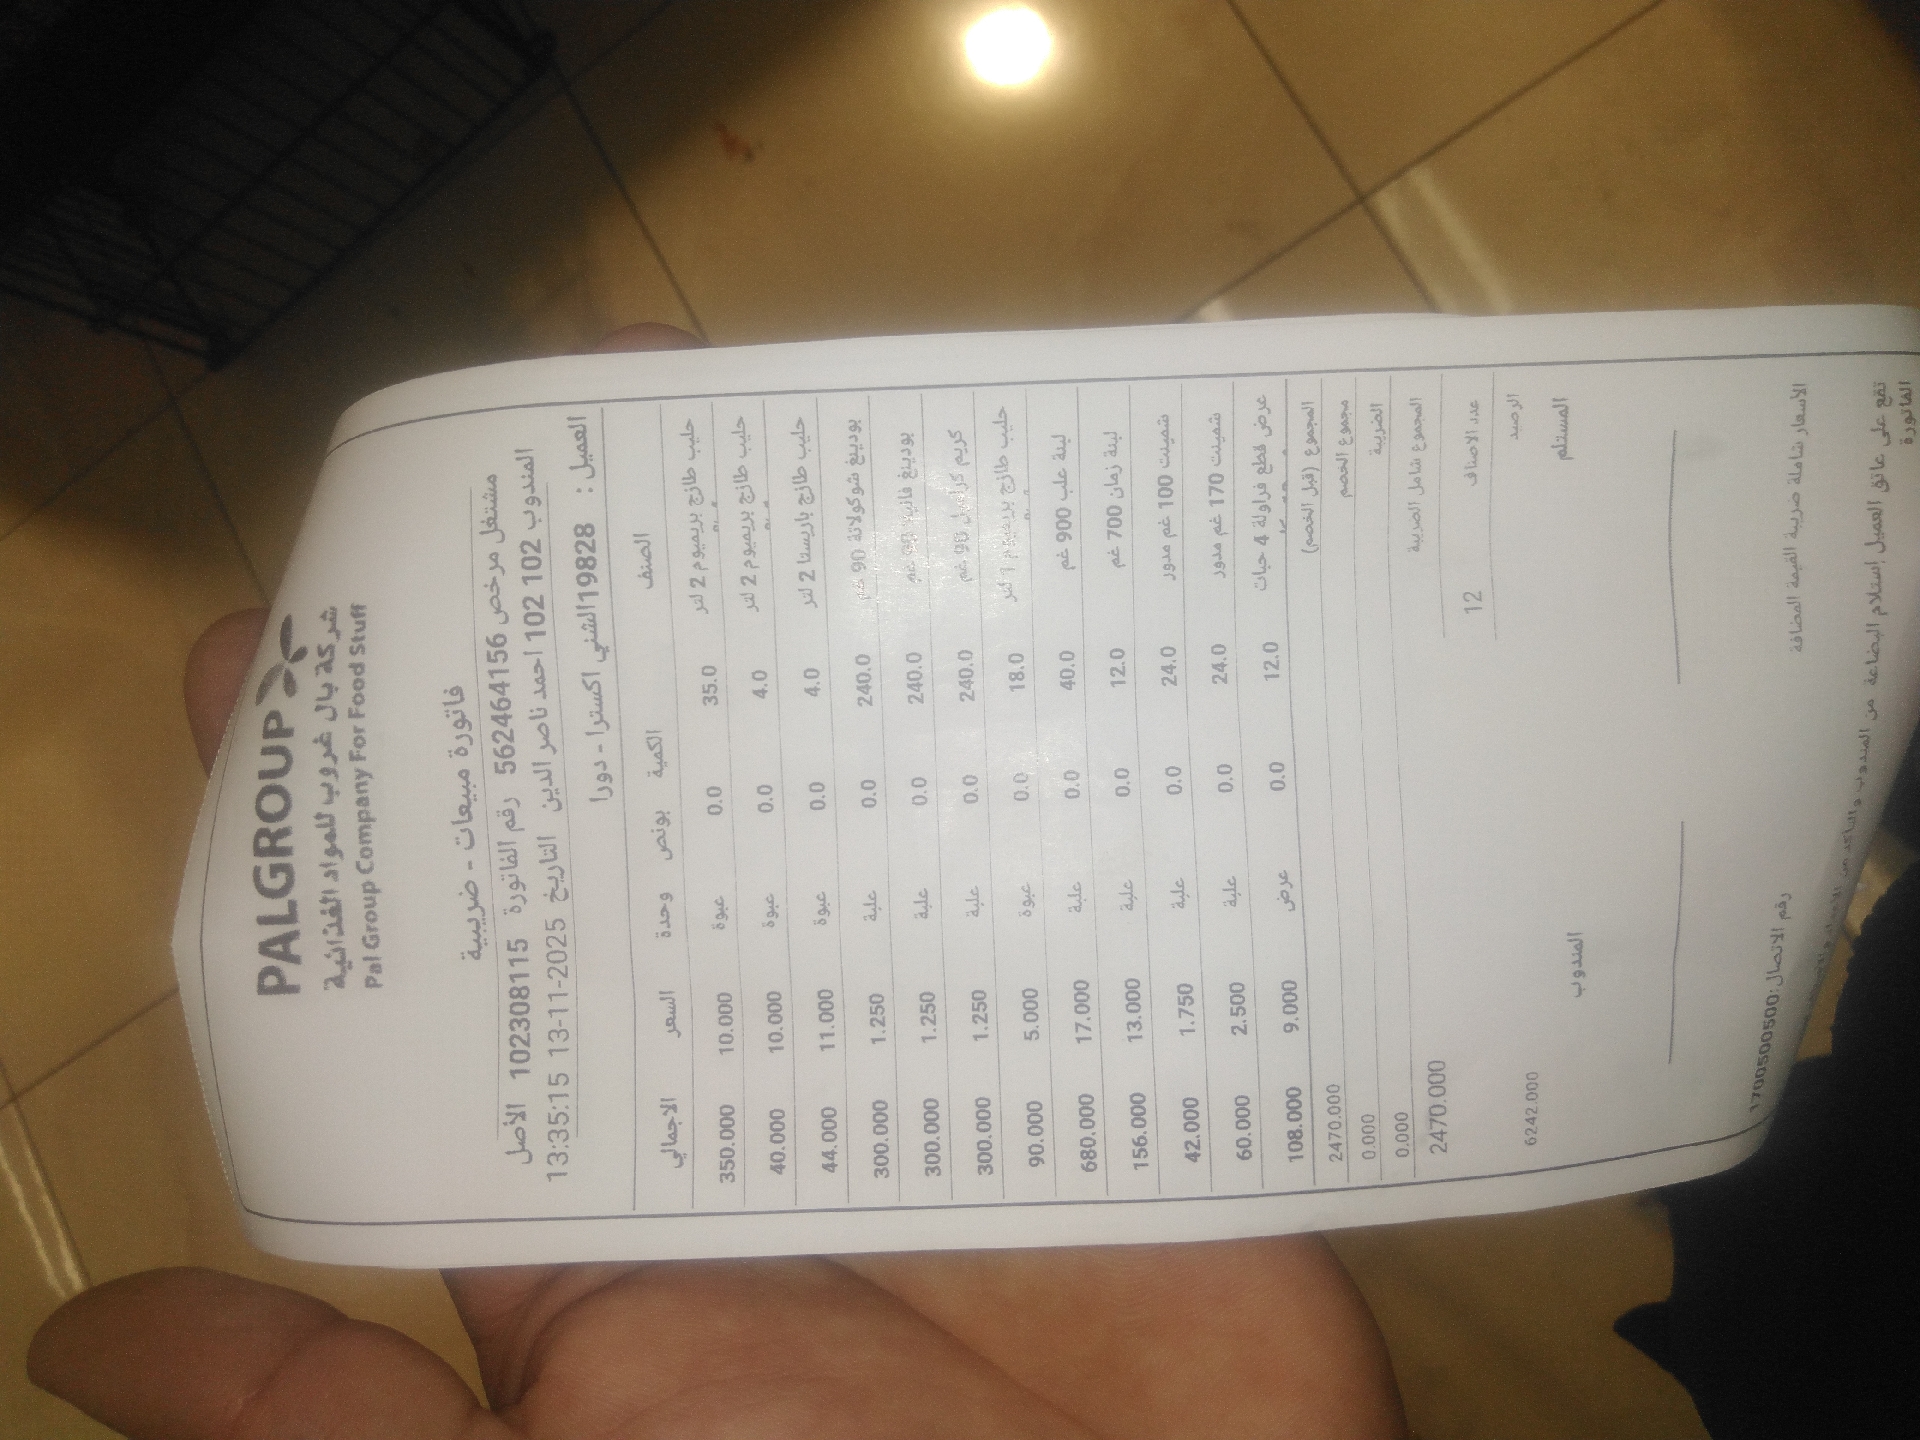 PALGROUP
شركة بال غروب للمواد الغذائية
Pal Group Company For Food Stuff
فاتورة مبيعات - ضريبية
مشتغل مرخص 562464156 رقم الفاتورة 102308115 الأصل
المندوب 102 102 احمد ناصر الدين التاريخ 2025-11-13 13:35:15
العميل : 19828الشني اكسترا - دورا
الصنف الكمية بونص وحدة السعر الاجمالي
حليب طازج بريميوم 2 لتر 35.0 0.0 عبوة 10.000 350.000
حليب طازج بريميوم 2 لتر 4.0 0.0 عبوة 10.000 40.000
حليب طازج باريستا 2 لتر 4.0 0.0 عبوة 11.000 44.000
بودينغ شوكولاتة 90 غم 240.0 0.0 علبة 1.250 300.000
بودينغ فانيلا 90 غم 240.0 0.0 علبة 1.250 300.000
كريم كراميل 90 غم 240.0 0.0 علبة 1.250 300.000
حليب طازج بريميوم 1 لتر 18.0 0.0 عبوة 5.000 90.000
لبنة علب 900 غم 40.0 0.0 علبة 17.000 680.000
لبنة زمان 700 غم 12.0 0.0 علبة 13.000 156.000
شمينت 100 غم مدور 24.0 0.0 علبة 1.750 42.000
شمينت 170 غم مدور 24.0 0.0 علبة 2.500 60.000
عرض قطع فراولة 4 حبات 12.0 0.0 عرض 9.000 108.000
المجموع (قبل الخصم) 2470.000
مجموع الخصم 0.000
الضريبة 0.000
المجموع شامل الضريبة 2470.000
عدد الاصناف 12
الرصيد 6242.000
المستلم المندوب
الأسعار شاملة ضريبة القيمة المضافة رقم الاتصال:1700500500
تقع على عاتق العميل إستلام البضاعة من المندوب والتأكد من
الفاتورة